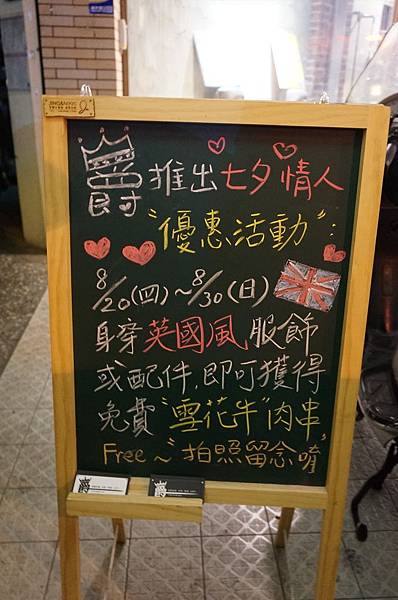 爵推出七夕情人
"優惠活動":
8/20(四)~8/30(日)
身穿英國風服飾
或配件,即可獲得
免費"雪花牛"肉串
Free~"拍照留念唷"